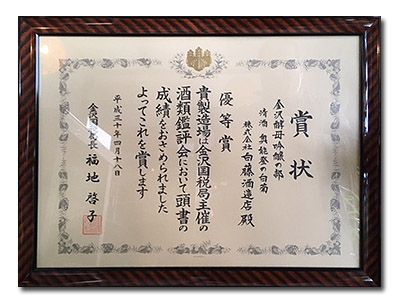 賞状
金沢酵母吟醸の部
清酒 奥能登の白菊
株式会社白藤酒造店 殿
優等賞
貴製造場は金沢国税局主催の
酒類鑑評会において頭書の
成績をおさめられました
よってこれを賞します
平成三十年四月十八日
金沢国税局長 福地啓子